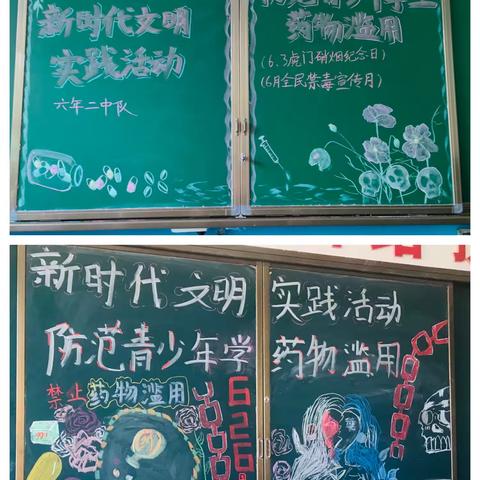 新时代文明
实践活动
六年二中队
药物滥用
(6.3虎门硝烟纪念日)
(6月全民禁毒宣传月)
新时代文明 实践活动
防范青少年学 药物滥用
禁止药物滥用
626